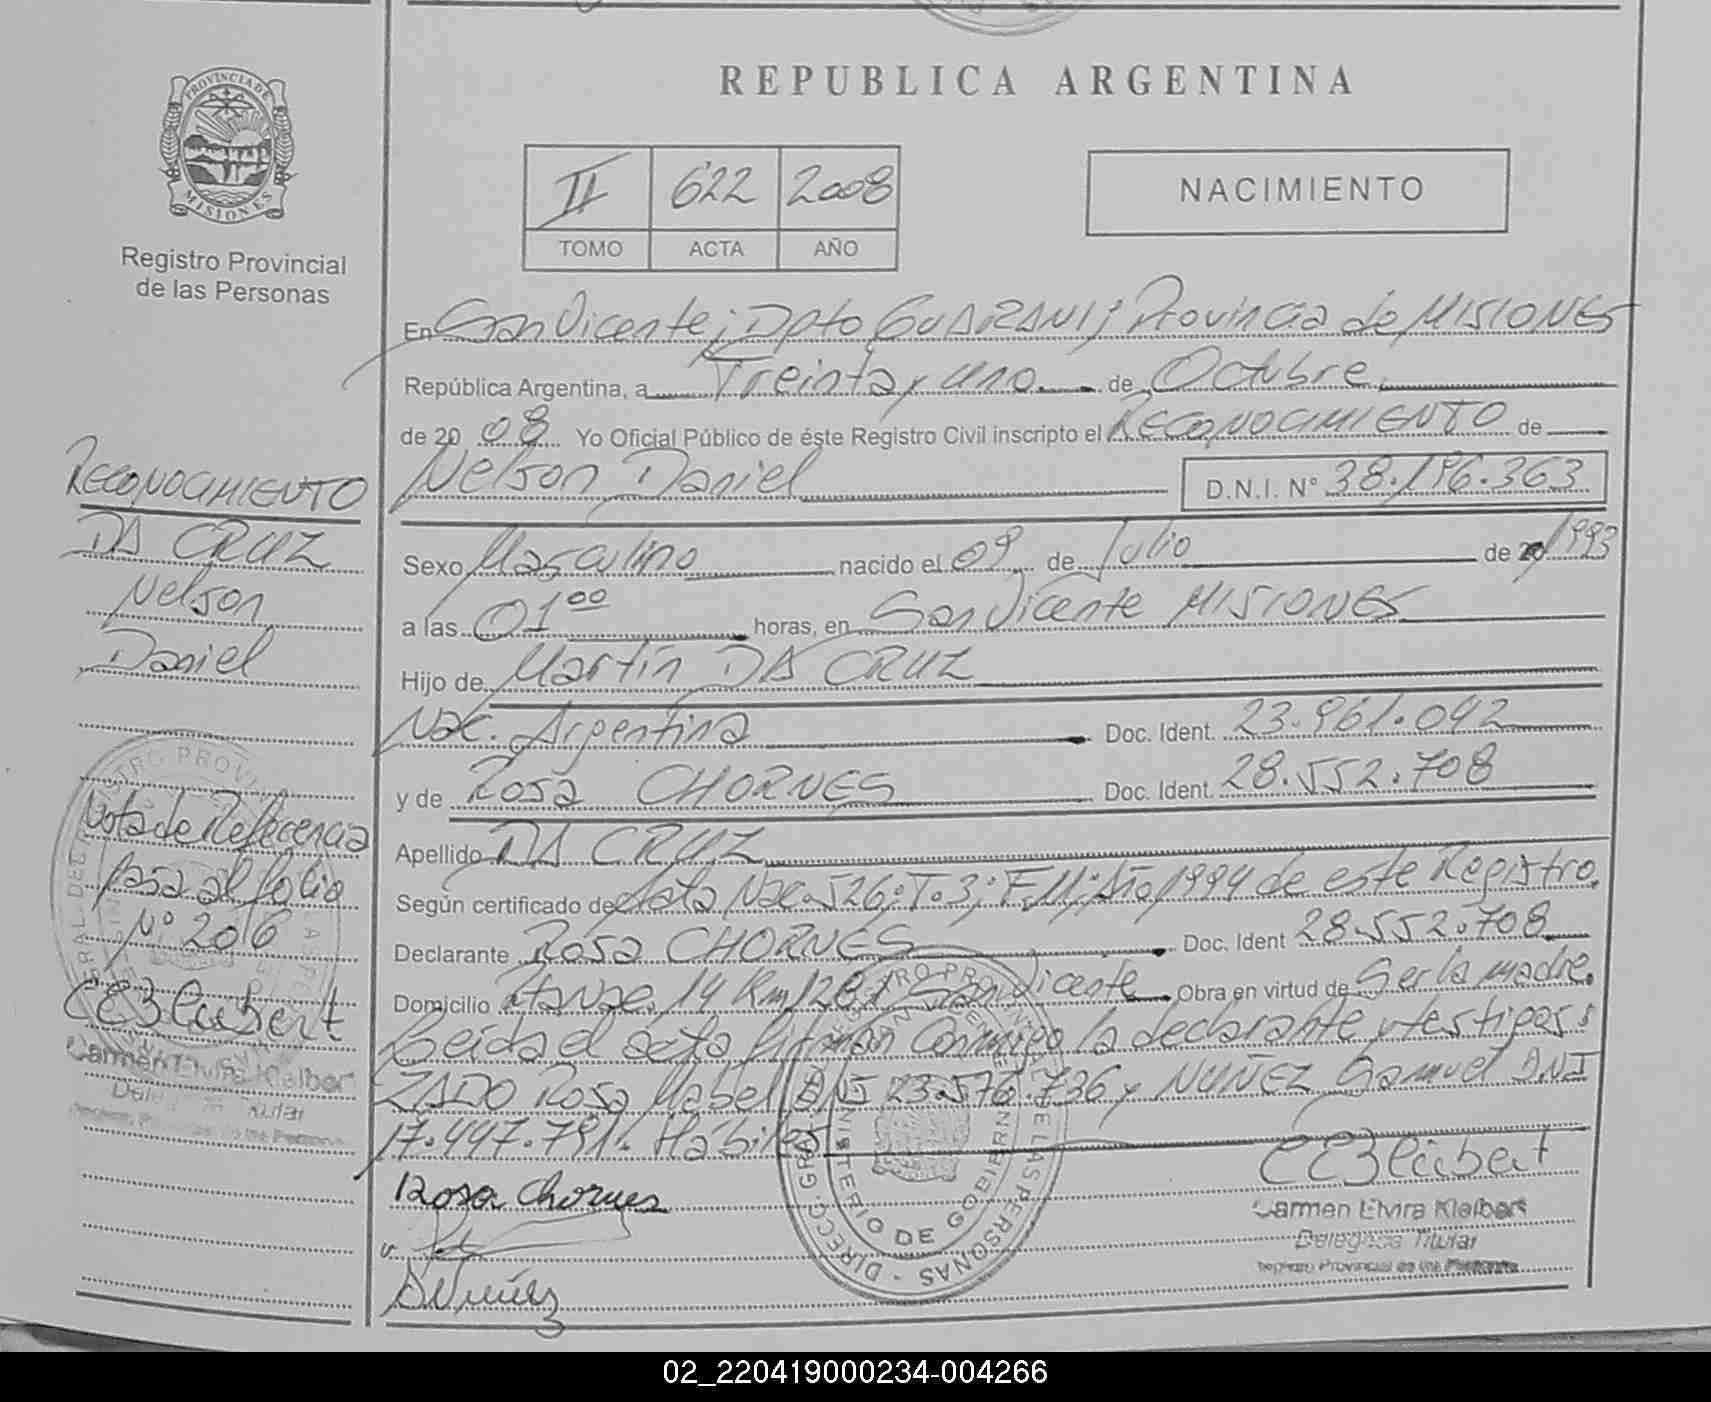 PROVINCIA DE
MISIONES
Registro Provincial
de las Personas
REPUBLICA ARGENTINA
II 622 2008
TOMO ACTA AÑO
NACIMIENTO
En San Vicente; Dpto GUARANI; Provincia de MISIONES
República Argentina, a Treinta y uno de Octubre
de 20 08 Yo Oficial Público de éste Registro Civil inscripto el RECONOCIMIENTO de
Nelson Daniel D.N.I. N° 38.196.363
Sexo Masculino nacido el 09 de Julio de 1993
a las 01 00 horas, en San Vicente MISIONES
Hijo de Martín DA CRUZ
Nac. Argentina Doc. Ident. 23.961.042
y de Rosa CHORNES Doc. Ident. 28.552.708
Apellido DA CRUZ
Según certificado de Acta Nac. 526; T.3; F.11; Año 1994 de este Registro.
Declarante Rosa CHORNES Doc. Ident 28.552.708
Domicilio 14 Km 1281 San Vicente Obra en virtud de Ser la madre.
Leida el acta firman conmigo la declarante y testigos:
Rosa Mabel DNI 23.576.736 y NUÑEZ Samuel DNI
17.447.791. Hábiles
Rosa Chornes
CE3Kleibert
Carmen Elvira Kleibert
Delegada Titular
Registro Provincial de las Personas
RECONOCIMIENTO
DA CRUZ
Nelson
Daniel
Nota de Referencia
pasa al folio
N° 206
CE3Kleibert
Carmen Elvira Kleibert
Delegada Titular
Registro Provincial de las Personas
MINISTERIO DE GOBIERNO
02_220419000234-004266